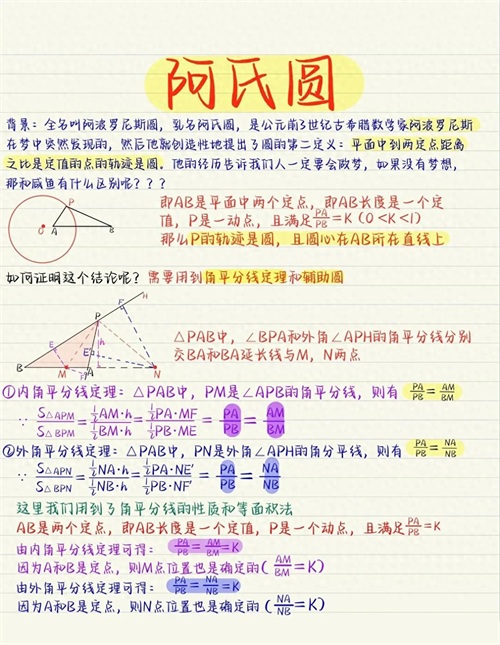 阿氏圆
背景：全名叫阿波罗尼斯圆，乳名阿氏圆，是公元前3世纪古希腊数学家阿波罗尼斯
在梦中突然发现的，然后他就创造性地提出了圆的第二定义：平面中到两定点距离
之比是定值的点的轨迹是圆。他的经历告诉我们人一定要会做梦，如果没有梦想，
那和咸鱼有什么区别呢？？？
P
O A B
即AB是平面中两个定点，即AB长度是一个定
值，P是一动点，且满足PA/PB=K（0<K<1）
那么P的轨迹是圆，且圆心在AB所在直线上
如何证明这个结论呢？需要用到角平分线定理和辅助圆
H
F
P
E h
E'
B M A N
△PAB中，∠BPA和外角∠APH的角平分线分别
交BA和BA延长线与M，N两点
①内角平分线定理：△PAB中，PM是∠APB的角平分线，则有 PA/PB=AM/BM
∵ S△APM/S△BPM=½AM·h/½BM·h=½PA·MF/½PB·ME=PA/PB=AM/BM
②外角平分线定理：△PAB中，PN是外角∠APH的角分平线，则有 PA/PB=NA/NB
∵ S△APN/S△BPN=½NA·h/½NB·h=½PA·NE'/½PB·NF'=PA/PB=NA/NB
这里我们用到了角平分线的性质和等面积法
AB是两个定点，即AB长度是一个定值，P是一个动点，且满足PA/PB=K
由内角平分线定理可得：PA/PB=AM/BM=K
因为A和B是定点，则M点位置也是确定的（AM/BM=K）
由外角平分线定理可得：PA/PB=NA/NB=K
因为A和B是定点，则N点位置也是确定的（NA/NB=K）